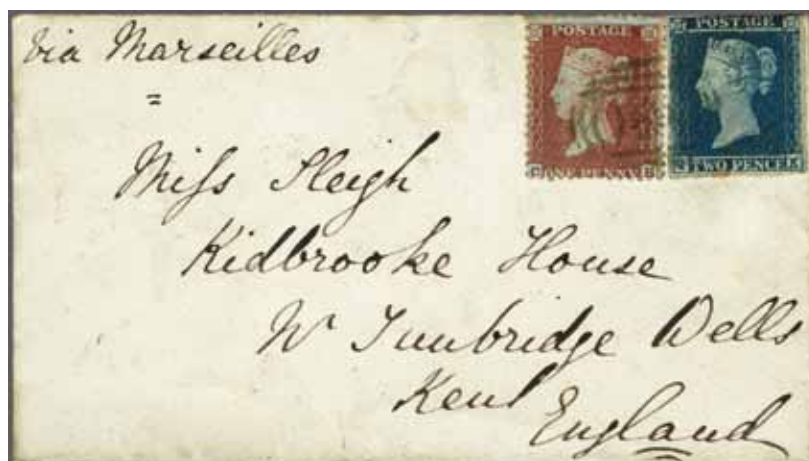 Via Marseilles
POSTAGE
ONE PENNY
POSTAGE
TWO PENCE
Miss Sleigh
Kidbrooke House
Nr Tunbridge Wells
Kent
England